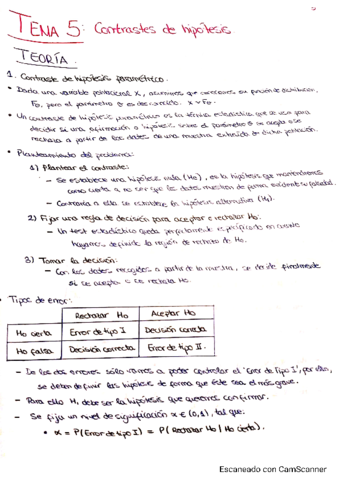 TEMA 5: Contrastes de hipótesis.
TEORÍA.
1. Contraste de hipótesis paramétrico.
• Dada una variable poblacional X, asumimos que conocemos su función de distribución,
Fθ, pero el parámetro θ es desconocido. X ~ Fθ.
• Un contraste de hipótesis paramétrico es la técnica estadística que se usa para
decidir si una afirmación o hipótesis sobre el parámetro θ se acepta o se
rechaza a partir de los datos de una muestra extraída de dicha población.
• Planteamiento del problema:
1) Plantear el contraste:
- Se establece una hipótesis nula (H₀), es la hipótesis que mantendremos
como cierta a no ser que los datos muestren de forma evidente su falsedad.
- Contraria a ella se establece la hipótesis alternativa (H₁).
2) Fijar una regla de decisión para aceptar o rechazar H₀:
- Un test estadístico queda perfectamente especificado en cuanto
hayamos definido la región de rechazo de H₀.
3) Tomar la decisión:
- Con los datos recogidos a partir de la muestra, se decide finalmente
si se acepta o se rechaza H₀.
• Tipos de error:
Rechazar H₀ Aceptar H₀
H₀ cierta Error de tipo I Decisión correcta
H₀ falsa Decisión correcta Error de tipo II.
- De los dos errores sólo vamos a poder controlar el 'Error de Tipo I', por ello,
se deben definir las hipótesis de forma que éste sea el más grave.
- Para ello H₁ debe ser la hipótesis que queremos confirmar.
- Se fija un nivel de significación α ∈ (0,1), tal que:
• α = P(Error de tipo I) = P(Rechazar H₀ | H₀ cierta).
Escaneado con CamScanner